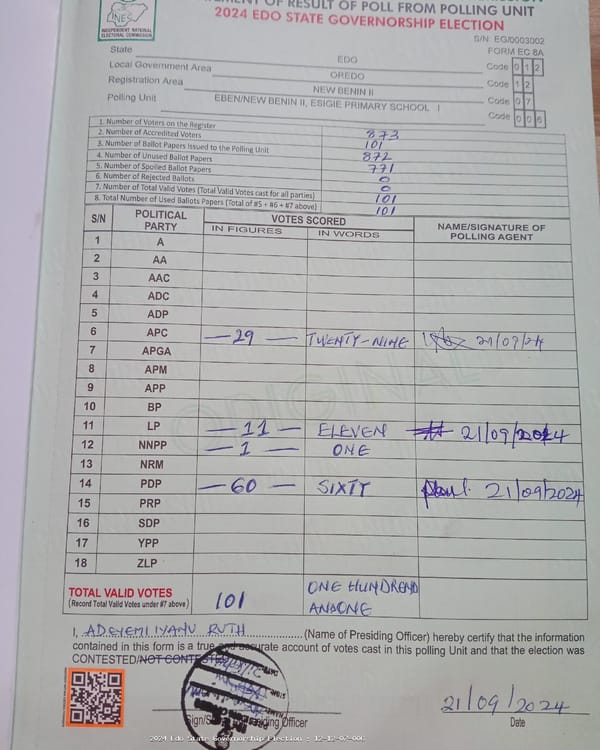 OF RESULT OF POLL FROM POLLING UNIT
2024 EDO STATE GOVERNORSHIP ELECTION
INEC
INDEPENDENT NATIONAL
ELECTORAL COMMISSION
S/N: EG/0003002
FORM EC 8A
State EDO
Local Government Area OREDO Code 0 1 2
Registration Area NEW BENIN II Code 1 2
Polling Unit EBEN/NEW BENIN II, ESIGIE PRIMARY SCHOOL I Code 0 7
Code 0 0 6
1. Number of Voters on the Register 873
2. Number of Accredited Voters 101
3. Number of Ballot Papers Issued to the Polling Unit 872
4. Number of Unused Ballot Papers 771
5. Number of Spoiled Ballot Papers 0
6. Number of Rejected Ballots 0
7. Number of Total Valid Votes (Total Valid Votes cast for all parties) 101
8. Total Number of Used Ballots Papers (Total of #5 + #6 + #7 above) 101
S/N POLITICAL PARTY VOTES SCORED NAME/SIGNATURE OF POLLING AGENT
IN FIGURES IN WORDS
1 A
2 AA
3 AAC
4 ADC
5 ADP
6 APC —29— TWENTY-NINE 21/09/24
7 APGA
8 APM
9 APP
10 BP
11 LP —11— ELEVEN 21/09/2024
12 NNPP —1— ONE
13 NRM
14 PDP —60— SIXTY 21/09/2024
15 PRP
16 SDP
17 YPP
18 ZLP
ORIGINAL
TOTAL VALID VOTES 101 ONE HUNDREND
(Record Total Valid Votes under #7 above) AND ONE
I, ADEYEMI IYANU RUTH (Name of Presiding Officer) hereby certify that the information
contained in this form is a true and accurate account of votes cast in this polling Unit and that the election was
CONTESTED/NOT CONTESTED
21/09/2024
Presiding Officer Date
2024 Edo State Governorship Election : 12-12-07-006